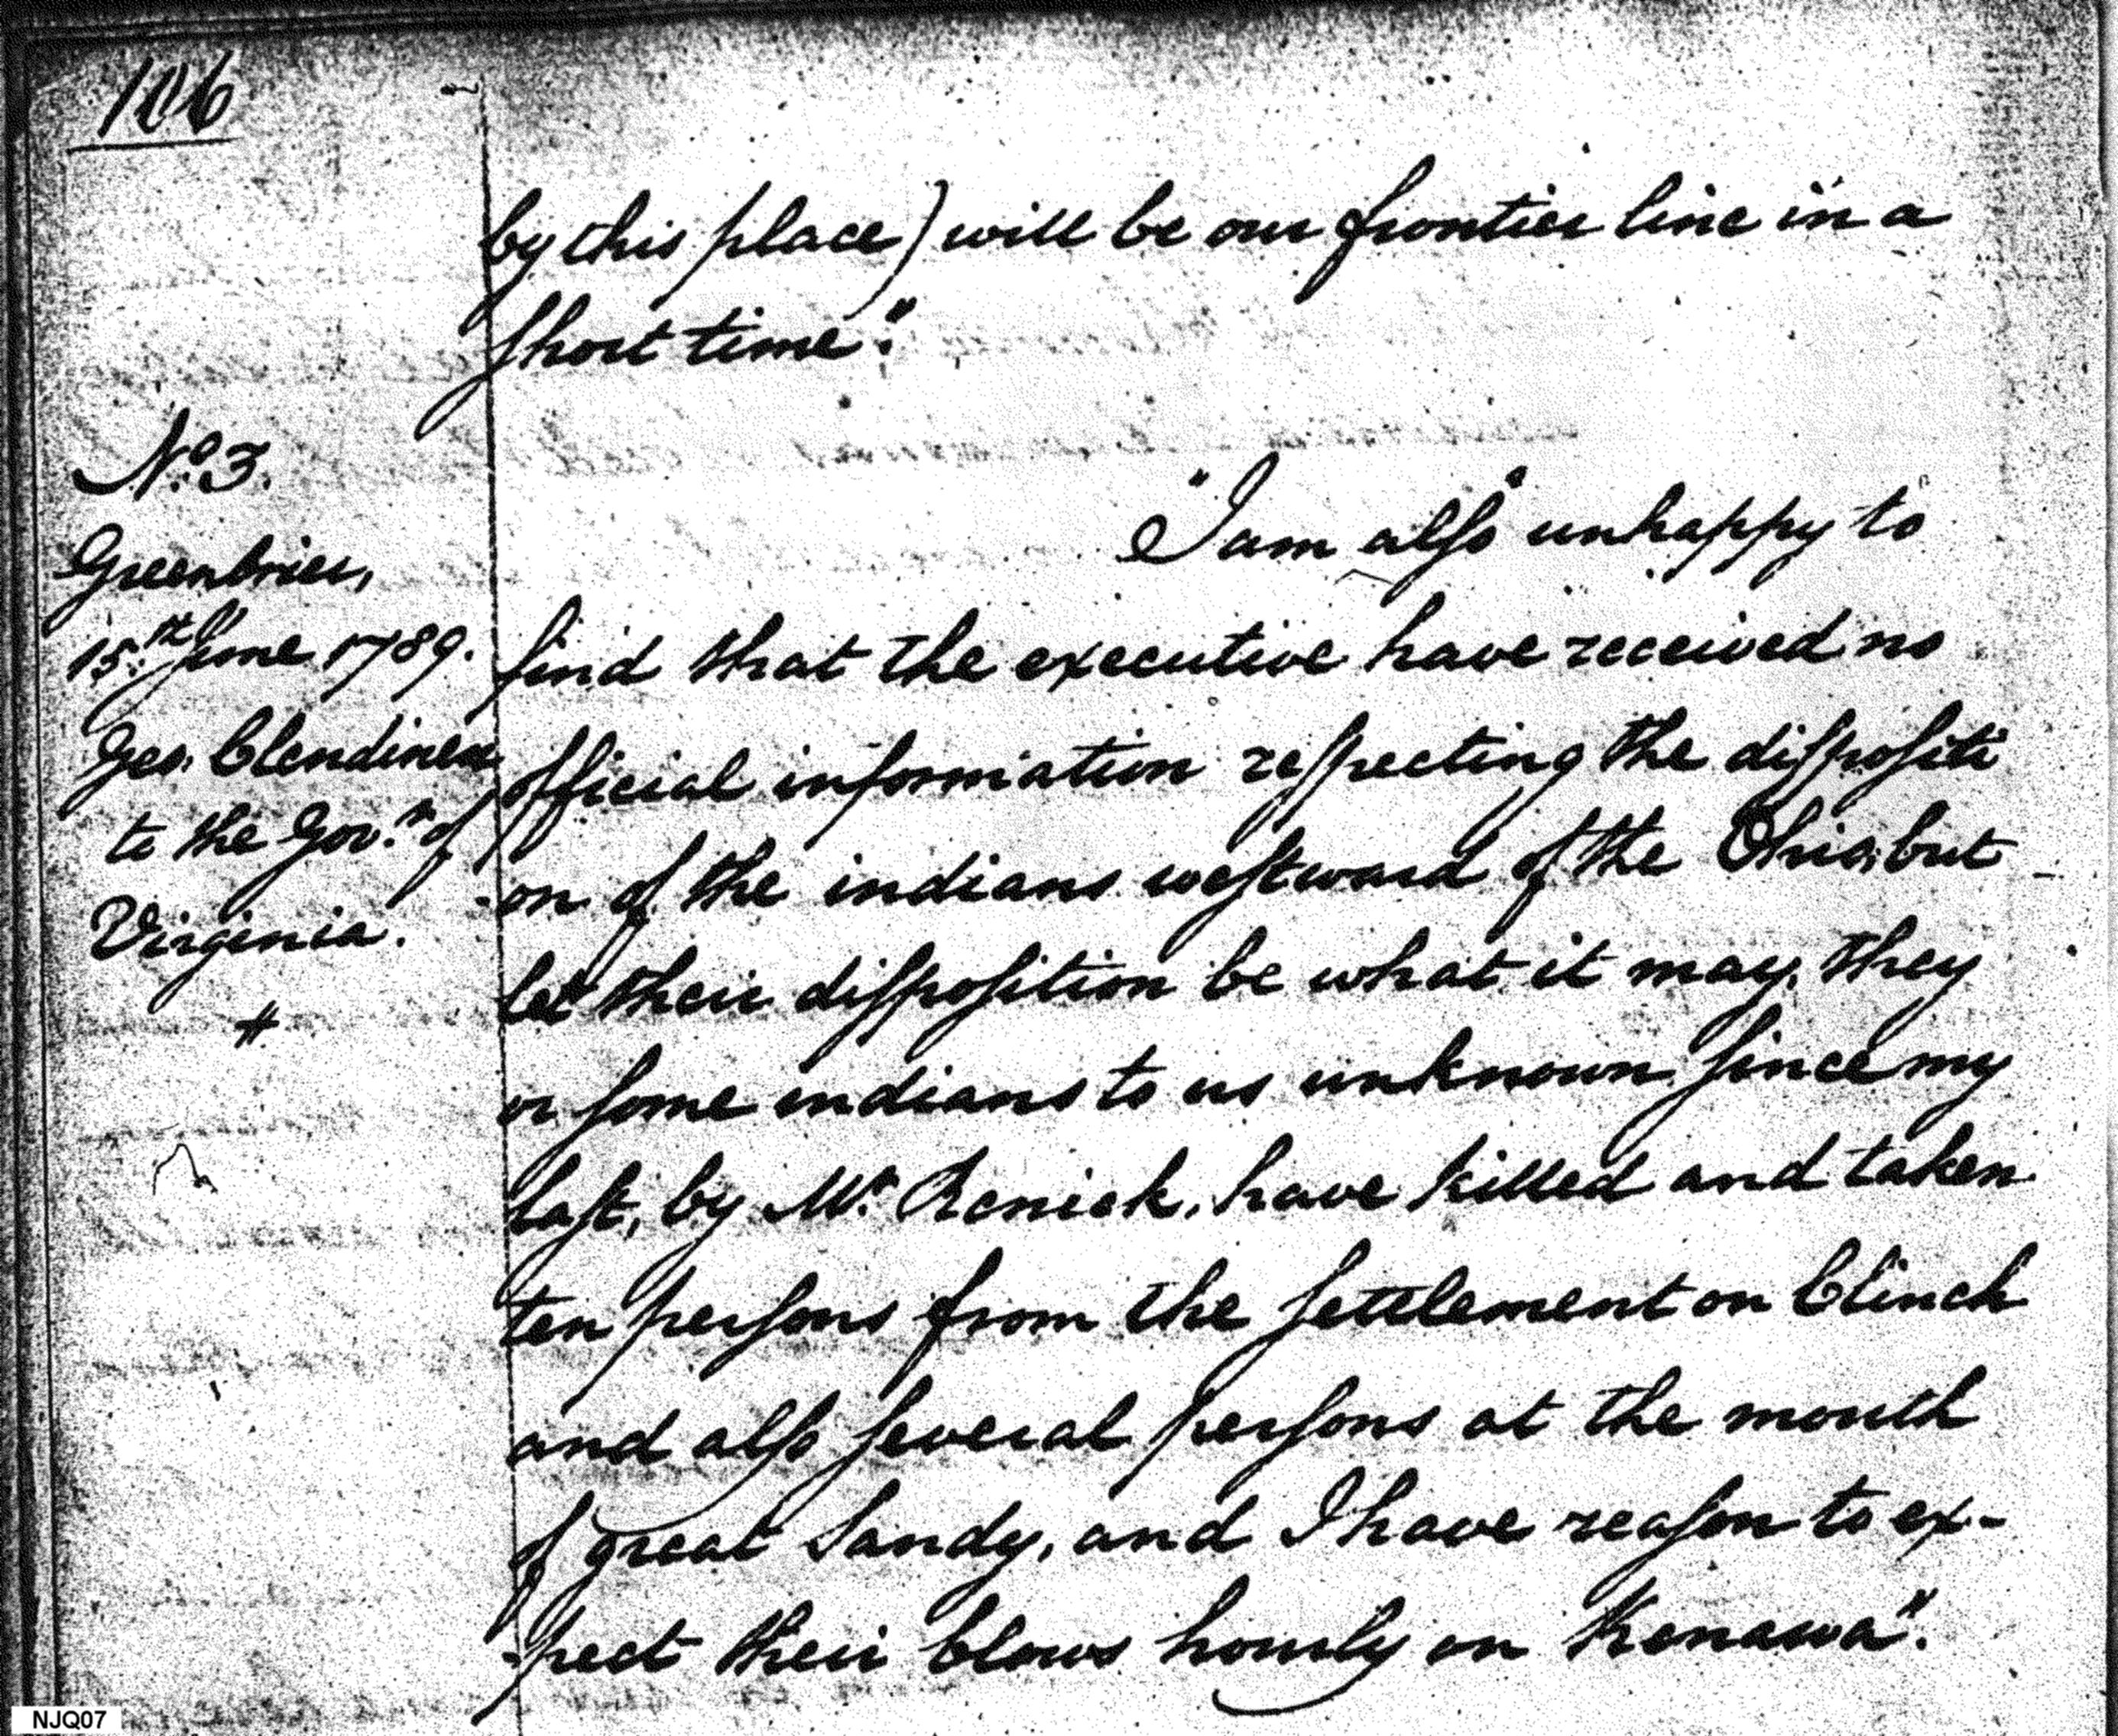 106
by this place) will be our frontier line in a
short time".
No. 3.
Greenbrier,
15th June 1789.
Geo. Clendinen
to the Govr. of
Virginia.
"I am also unhappy to
find that the executive have received no
official information respecting the dispositi
-on of the indians westward of the Ohio; but
let their disposition be what it may, they
or some indians to us unknown since my
last, by Mr. Renick, have killed and taken
ten persons from the settlement on Clinch
and also several persons at the mouth
of great Sandy, and I have reason to ex-
-pect their blows hourly on Kenawa".
NJQ07